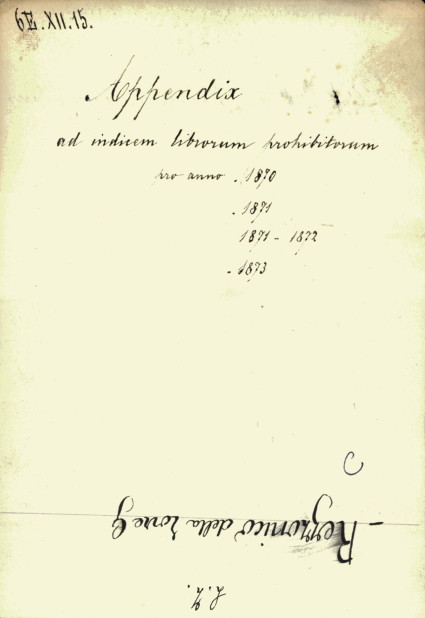 6E.XII.15.
Appendix
ad indicem librorum prohibitorum
pro anno . 1870
. 1871
1871 - 1872
- 1873
Rezzonico della Torre G